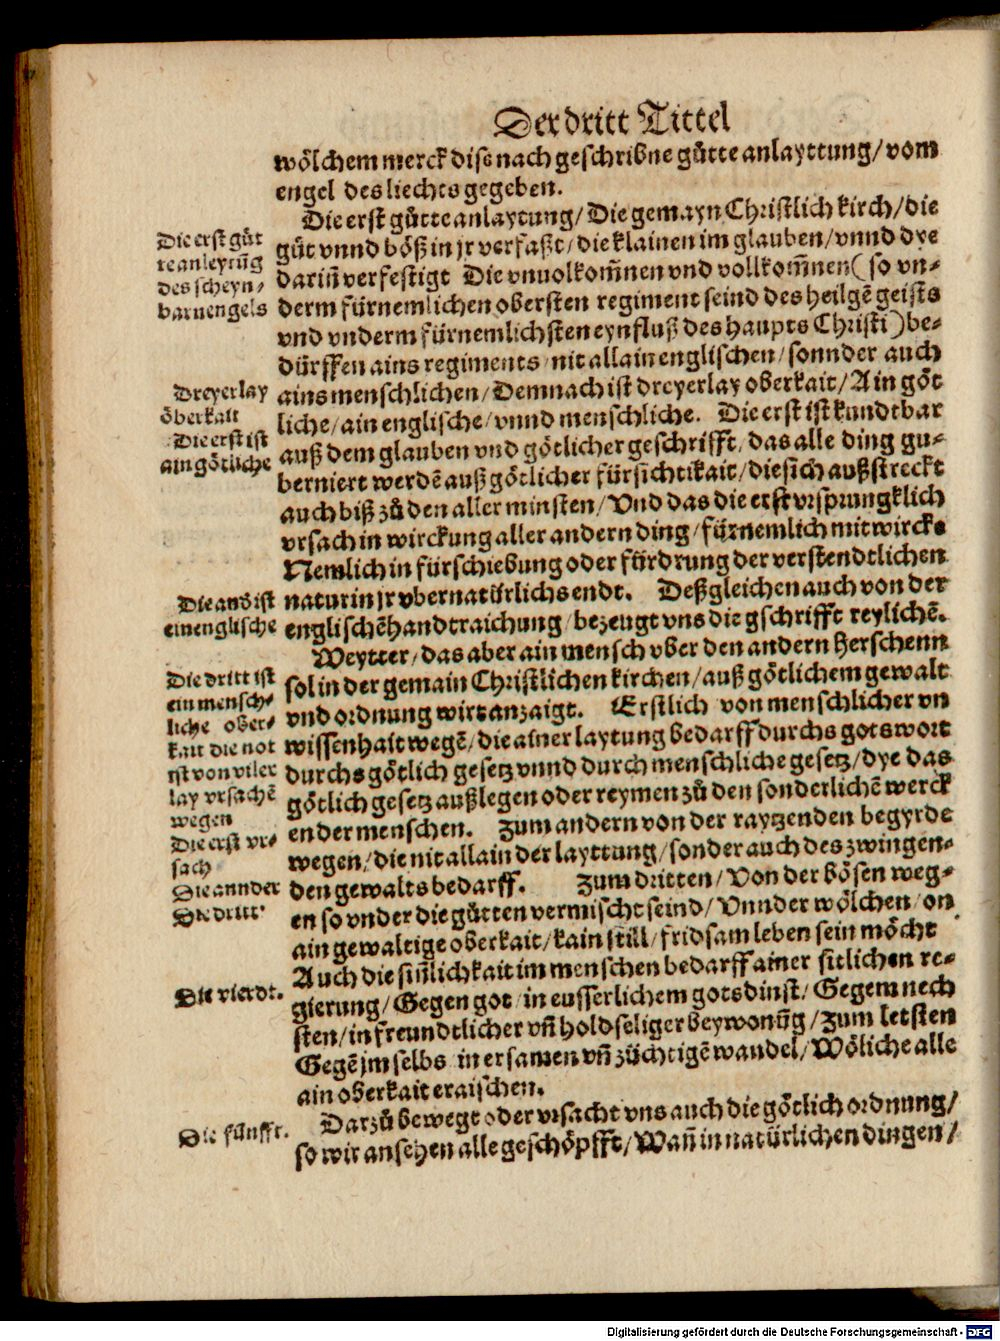 Der dritt Tittel
wölchem merck dise nach geschribne gůtte anlayttung/ vom
engel des liechts gegeben.
Die erst gůtte anlaytung/ Die gemayn Christlich kirch/ die
gůt vnnd böß in jr verfaßt/ die klainen im glauben/ vnnd dye
dariñ verfestigt Die vnuolkom̃nen vnd vollkom̃nen ( so vn-
derm fürnemlichen obersten regiment seind des heilgẽ geists
vnd vnderm fürnemlichsten eynfluß des haupts Christi ) be-
dürffen ains regiments/ nit allain englischen/ sonnder auch
ains menschlichen/ Demnach ist dreyerlay oberkait/ Ain göt
liche/ ain englische/ vnnd menschliche. Die erst ist kundtbar
auß dem glauben vnd götlicher geschrifft/ das alle ding gu-
berniert werdẽ auß götlicher fürsichtikait/ die sich außstreckt
auch biß zů den aller minsten/ Vnd das die erst vrsprungklich
vrsach in wirckung aller andern ding/ fürnemlich mitwircke
Nemlich in fürschiebung oder fürdrung der verstendtlichen
natur in jr vbernatürlichs endt. Deßgleichen auch von der
englischẽ handtraichung/ bezeugt vns die gschrifft reylichẽ.
Weytter/ das aber ain mensch vber den andern herschenn
sol in der gemain Christlichen kirchen/ auß götlichem gewalt
vnd ordnung wirt anzaigt. Erstlich von menschlicher vn
wissenhait wegẽ/ die ainer laytung bedarff durchs gotswort
durchs götlich gesetz vnnd durch menschliche gesetz/ dye das
götlich gesetz außlegen oder reymen zů den sonderlichẽ werck
en der menschen. Zum andern von der raytzenden begyrde
wegen/ die nit allain der layttung/ sonder auch des zwingen-
den gewalts bedarff. Zum dritten/ Von der bösen weg-
en so vnder die gůtten vermischt seind/ Vnnder wölchen/ on
ain gewaltige oberkait/ kain still/ fridsam leben sein möcht
Auch die siñlichkait im menschen bedarff ainer sitlichen re-
gierung/ Gegen got/ in eusserlichem gotsdinst/ Gegem nech
sten/ in freundtlicher vñ holdseliger beywonũg/ Zum letsten
Gegẽ jm selbs in ersamen vñ züchtigẽ wandel/ Wöliche alle
ain oberkait eraischen.
Darzů bewegt oder vrsacht vns auch die götlich ordnung/
so wir ansehen alle geschöpfft/ Wañ in natürlichen dingen/
Die erst gůt
te anleytũg
des scheyn-
barn engels
Dreyerlay
öberkait
Die erst ist
ain götliche
Die and ist
ein englische
Die dritt ist
ein mensch-
liche ober-
kait die not
ist von viler
lay vrsachẽ
wegen
Die erst vr-
sach
Die annder
Die dritt.
Die vierdt.
Die fünfft.
Digitalisierung gefördert durch die Deutsche Forschungsgemeinschaft - DFG